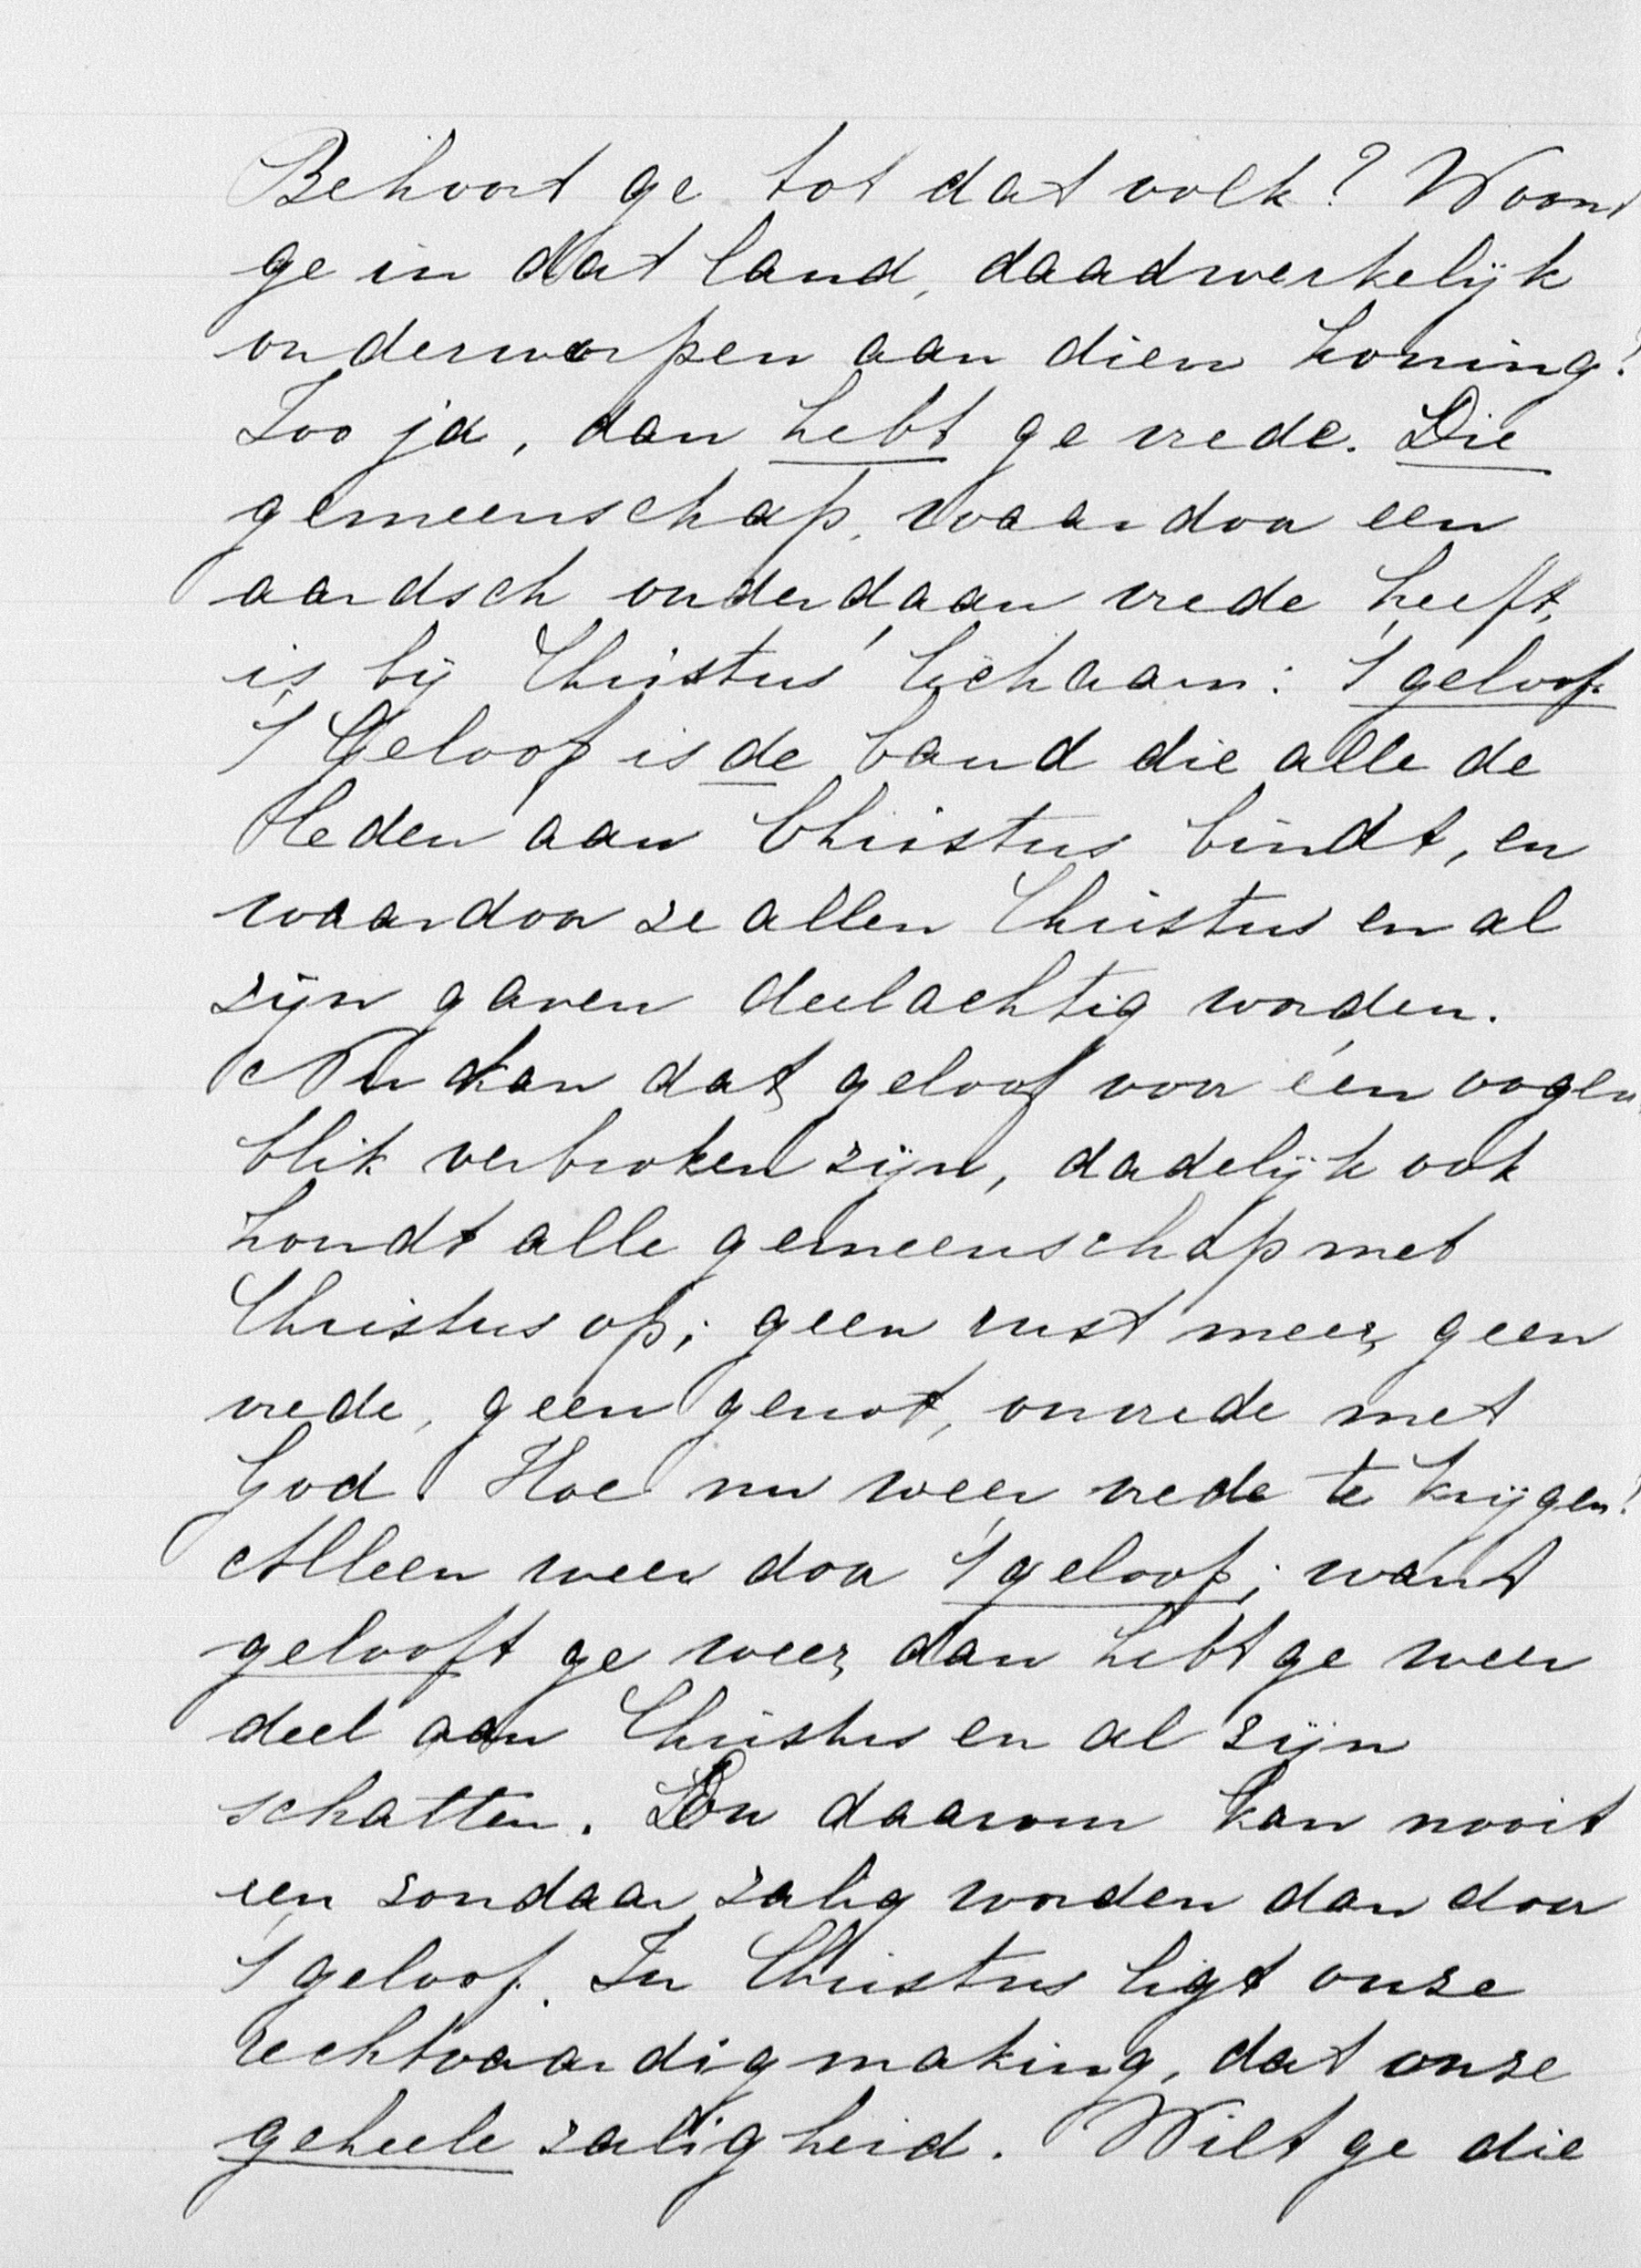 Behoort ge tot dat volk? Woont
ge in dat land, daadwerkelijk
onderworpen aan dien koning?
Zoo ja, dan hebt ge vrede. Die
gemeenschap, waardoor een
aardsch onderdaan vrede heeft,
is bij Christus' lichaam: 't geloof.
't Geloof is de band die alle de
leden aan Christus bindt, en
waardoor ze allen Christus en al
zijn gaven deelachtig worden.
Nu kan dat geloof voor één oogen
blik verbroken zijn, dadelijk ook
houdt alle gemeenschap met
Christus op; geen rust meer, geen
vrede, geen genot, onvrede met
God. Hoe nu weer vrede te krijgen?
Alleen weer door 't geloof; want
gelooft ge weer, dan hebt ge weer
deel aan Christus en al zijn
schatten. En daarom kan nooit
een zondaar zalig worden dan door
't geloof. In Christus ligt onze
rechtvaardigmaking, dat onze
geheele zaligheid. Wilt ge die